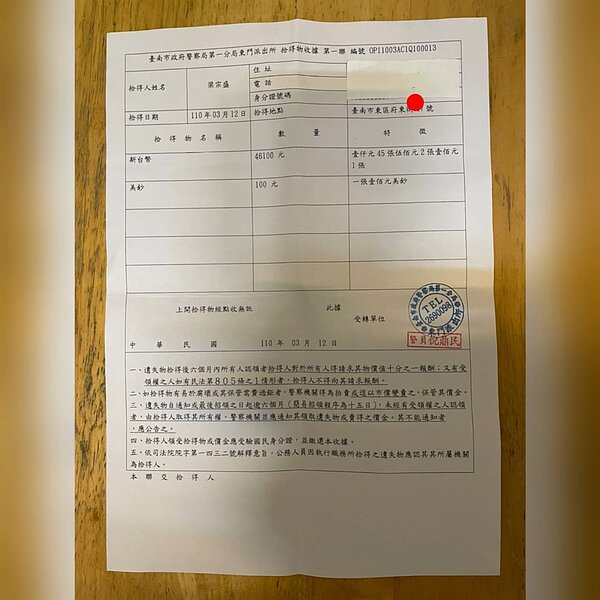 臺南市政府警察局第一分局東門派出所 拾得物收據 第一聯 編號 OP11003AC1Q100013
拾得人姓名 梁宗盛 住址
電話
身分證號碼
拾得日期 110 年 03 月 12 日 拾得地點 臺南市東區府東街 號
拾得物名稱 數量 特徵
新台幣 46100 元 壹仟元 45 張伍佰元 2 張壹佰元
1 張
美鈔 100 元 一張壹佰元美鈔
上開拾得物經點收無訛 此據
受轉單位
中華民國 110 年 03 月 12 日
臺南市政府警察局第一分局
TEL
2690098
東門派出所
警員倪鼎民
一、遺失物拾得後六個月內所有人認領者拾得人對於所有人得請求其物價值十分之一報酬；又有受
領權之人如有民法第８０５條之１情形者，拾得人不得向其請求報酬。
二、如拾得物有易於腐壞或其保管需費過鉅者，警察機關得為拍賣或逕以市價變賣之，保管其價金。
三、遺失物自通知或最後招領之日起逾六個月（簡易招領程序為十五日），未經有受領權之人認領
者，由拾得人取得其所有權，警察機關並應通知其領取遺失物或賣得之價金。其不能通知者
，應公告之。
四、拾得人領受拾得物或價金應受驗國民身分證，並繳還本收據。
五、依司法院院字第一四三二號解釋意旨，公務人員因執行職務所拾得之遺失物應認其所屬機關
為拾得人。
本聯交拾得人